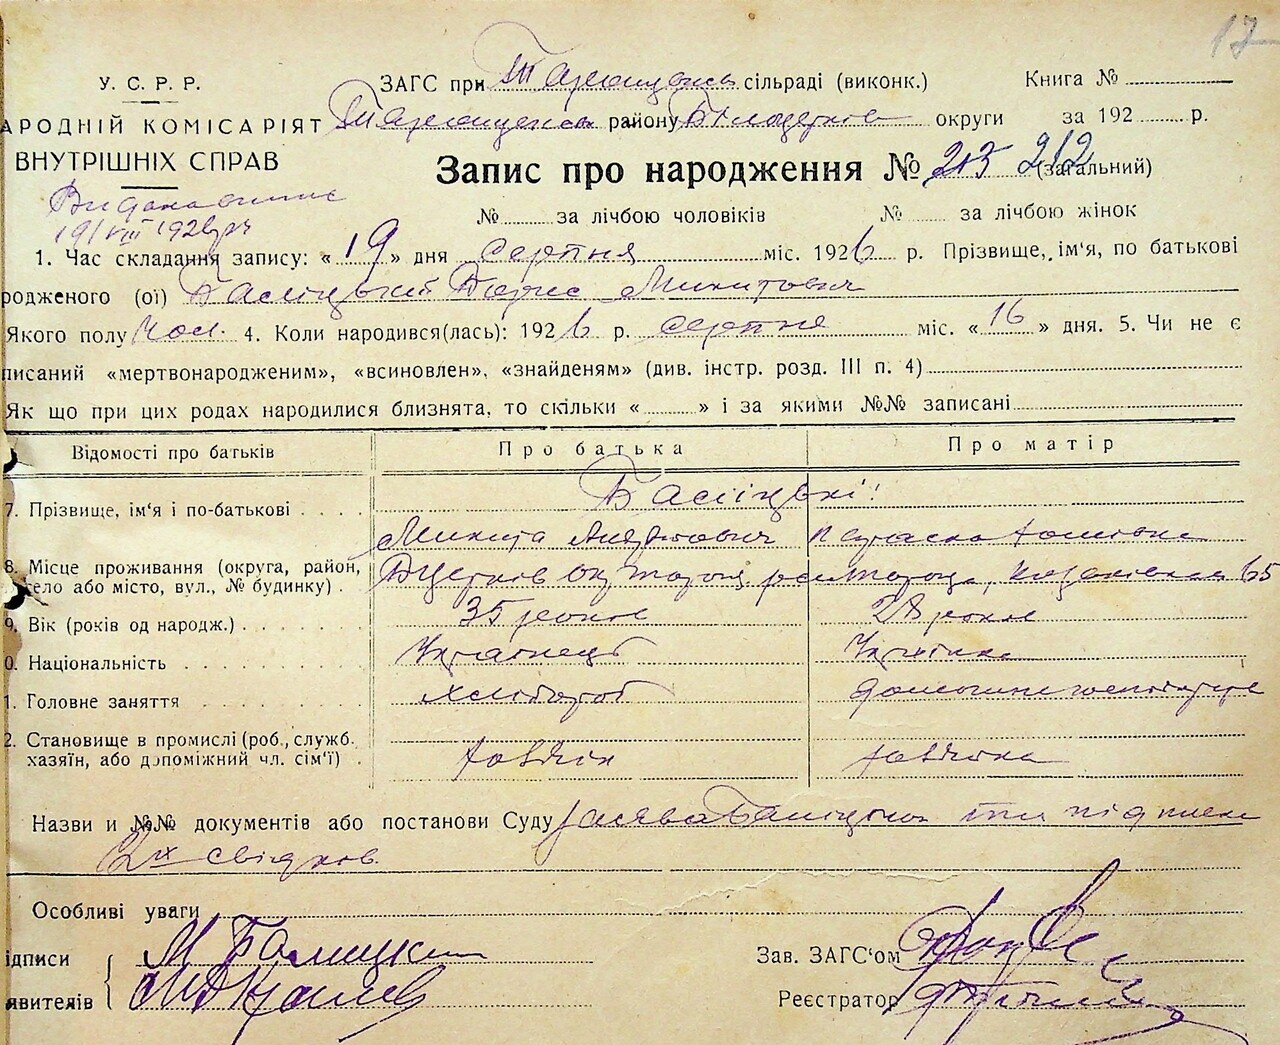 17
У. С. Р. Р.
АРОДНІЙ КОМІСАРІЯТ
ВНУТРІШНІХ СПРАВ
19/VIII 1926
ЗАГС при Таращансь сільраді (виконк.) Книга №
Таращансь району Білоцерков округи за 192 р.
Запис про народження № 213 212 (загальний)
№ за лічбою чоловіків № за лічбою жінок
1. Час складання запису: « 19 » дня серпня міс. 1926 р. Прізвище, ім'я, по батькові
родженого (ої) Баліцький Борис Микитович
Якого полу чол. 4. Коли народився(лась): 1926 р. серпня міс. « 16 » дня. 5. Чи не є
писаний «мертвонародженим», «всиновлен», «знайденям» (див. інстр. розд. III п. 4)
Як що при цих родах народилися близнята, то скільки « » і за якими №№ записані
Відомості про батьків Про батька Про матір
7. Прізвище, ім'я і по-батькові Баліцькі
Микита
8. Місце проживання (округа, район, село або місто, вул., № будинку) Бцерків ок 65
9. Вік (років од народж.) 35 років 28 років
0. Національність Українець Українка
1. Головне заняття хлібороб
2. Становище в промислі (роб., служб. хазяїн, або допоміжний чл. сім'ї)
Назви и №№ документів або постанови Суду заява Баліцьког та підписи
2х свідков
Особливі уваги
ідписи М Балицки
явителів
Зав. ЗАГС'ом
Реєстратор